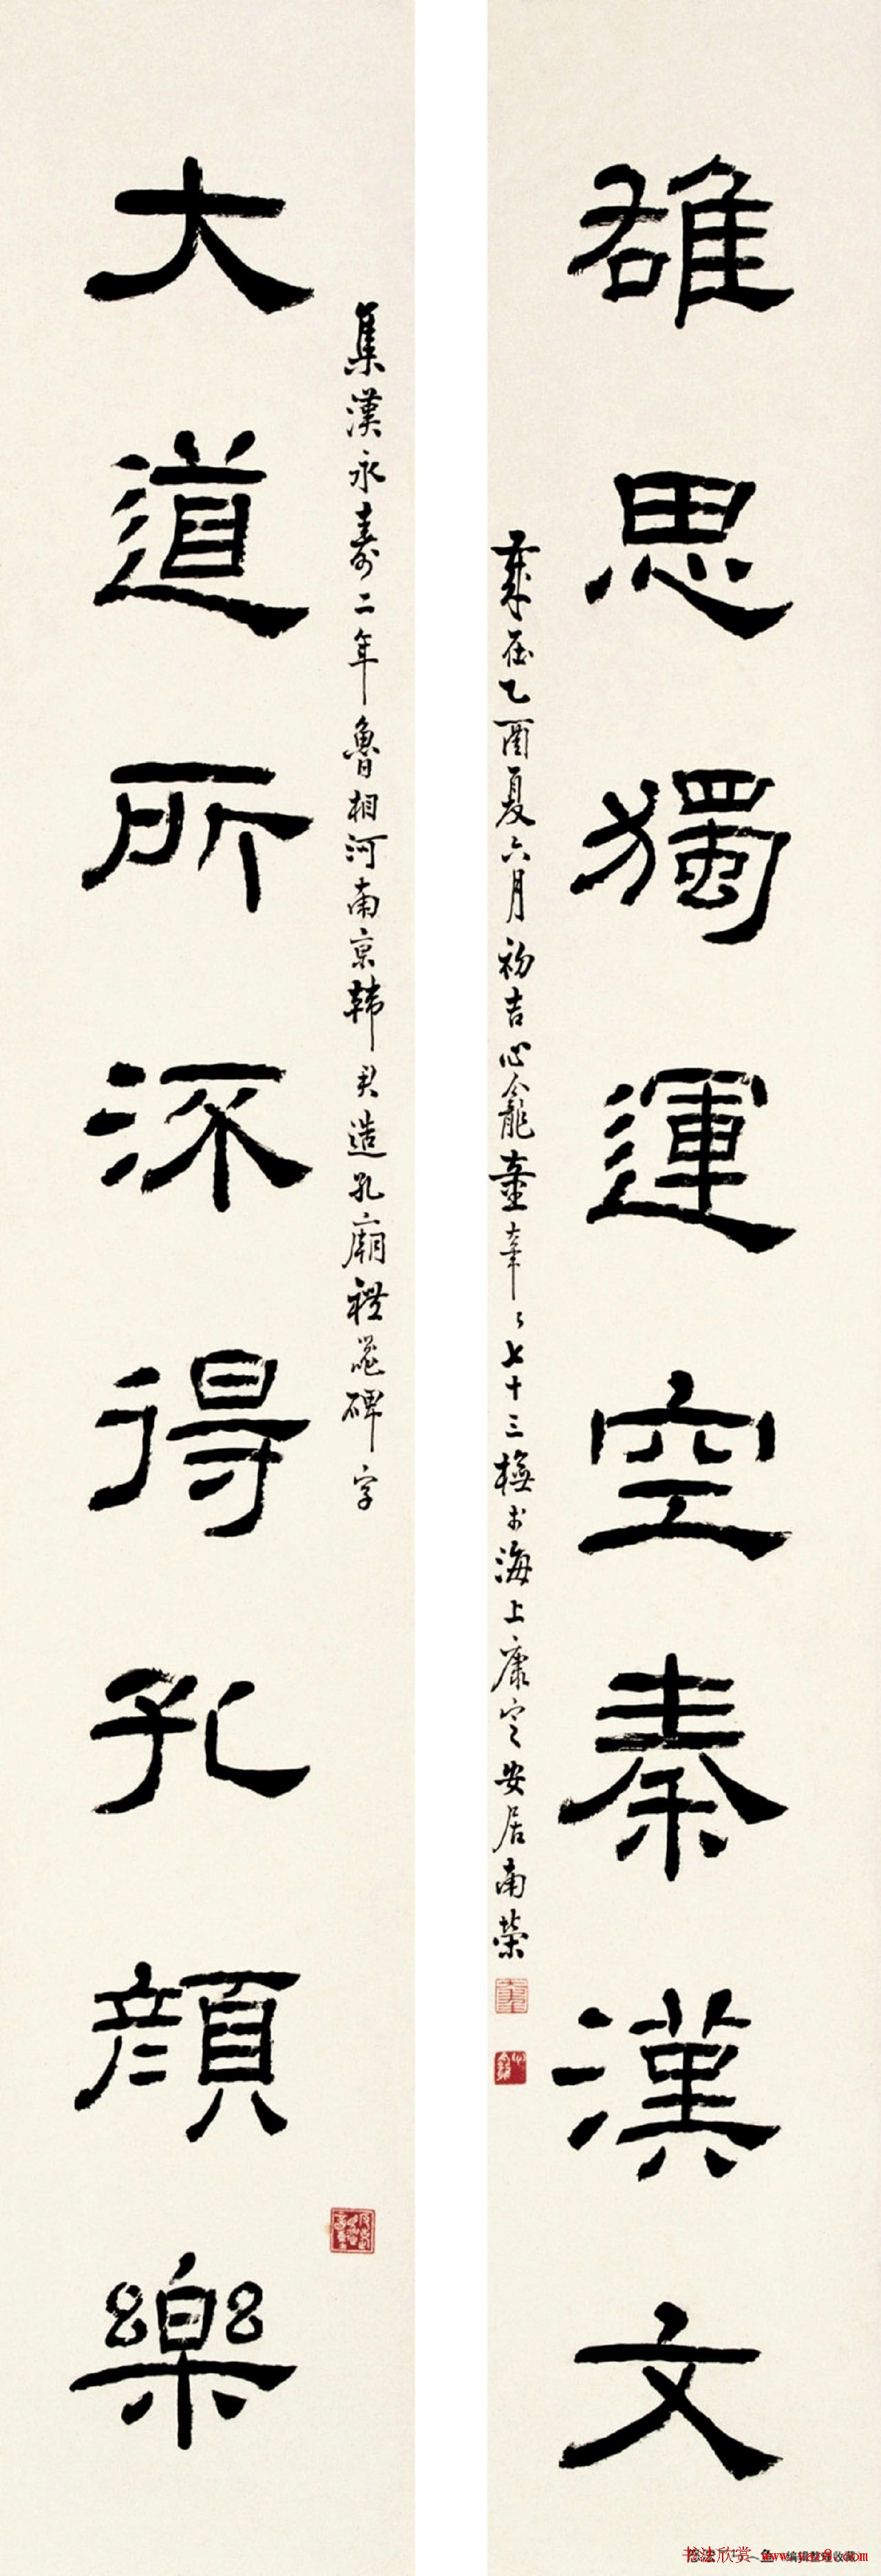 雄思獨運空秦漢文
歲在乙酉夏六月初吉心龕童年七十三橅於海上康定安居南榮
大道所深得孔顏樂
集漢永壽二年魯相河南京韓君造孔廟禮器碑字
书法欣赏 www.yac8.com
编辑整理收藏